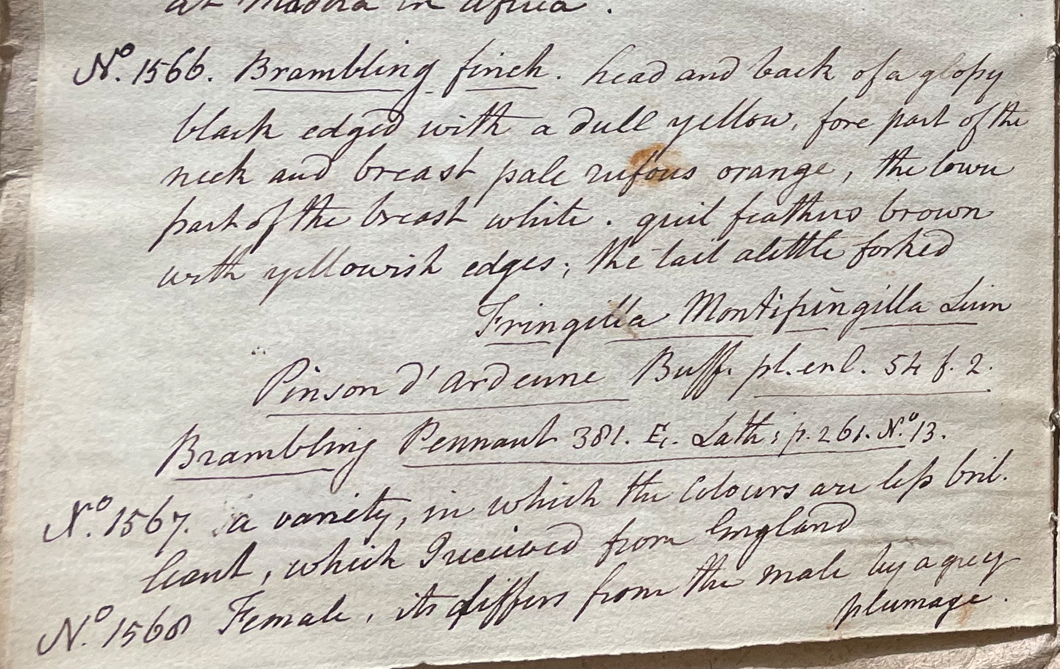 at Madera in Africa.
No. 1566. Brambling finch. head and back of a glossy
black edged with a dull yellow, fore part of the
neck and breast pale rufous orange, the lower
part of the breast white. quil feathers brown
with yellowish edges; the tail alittle forked
Fringilla Montifringilla Linn
Pinson d'ardenne Buff. pl. enl. 54 f. 2.
Brambling Pennant 381. E. Lath: p. 261. No. 13.
No. 1567. a variety, in which the Colours are less bril.
liant, which I received from England
No. 1568 Female, its differs from the male by a grey
plumage.